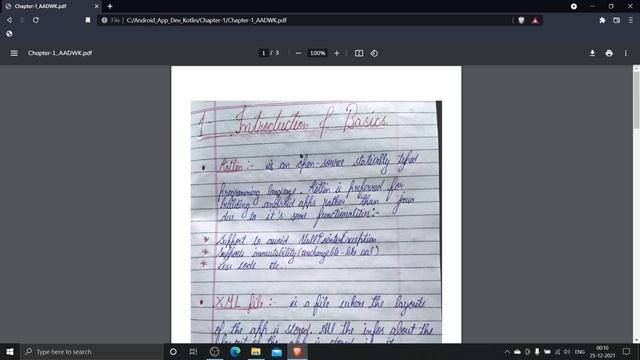 Chapter-1_AADWK.pdf
File | C:/Android_App_Dev_Kotlin/Chapter-1/Chapter-1_AADWK.pdf
Chapter-1_AADWK.pdf
1 / 3
100%
1 Introduction of Basics
• Kotlin:- is an open-source statically typed
programming language. Kotlin is preferred for
building android apps rather than java
due to it's some functionalities:-
* Support to avoid NullPointerException
* Supports immutability (unchangeable-like val)
* Less code etc.
• XML file:- is a file where the layouts
of the app is stored. All the infos about the
layout of the app is stored in it
Type here to search
ENG
00:10
25-12-2021